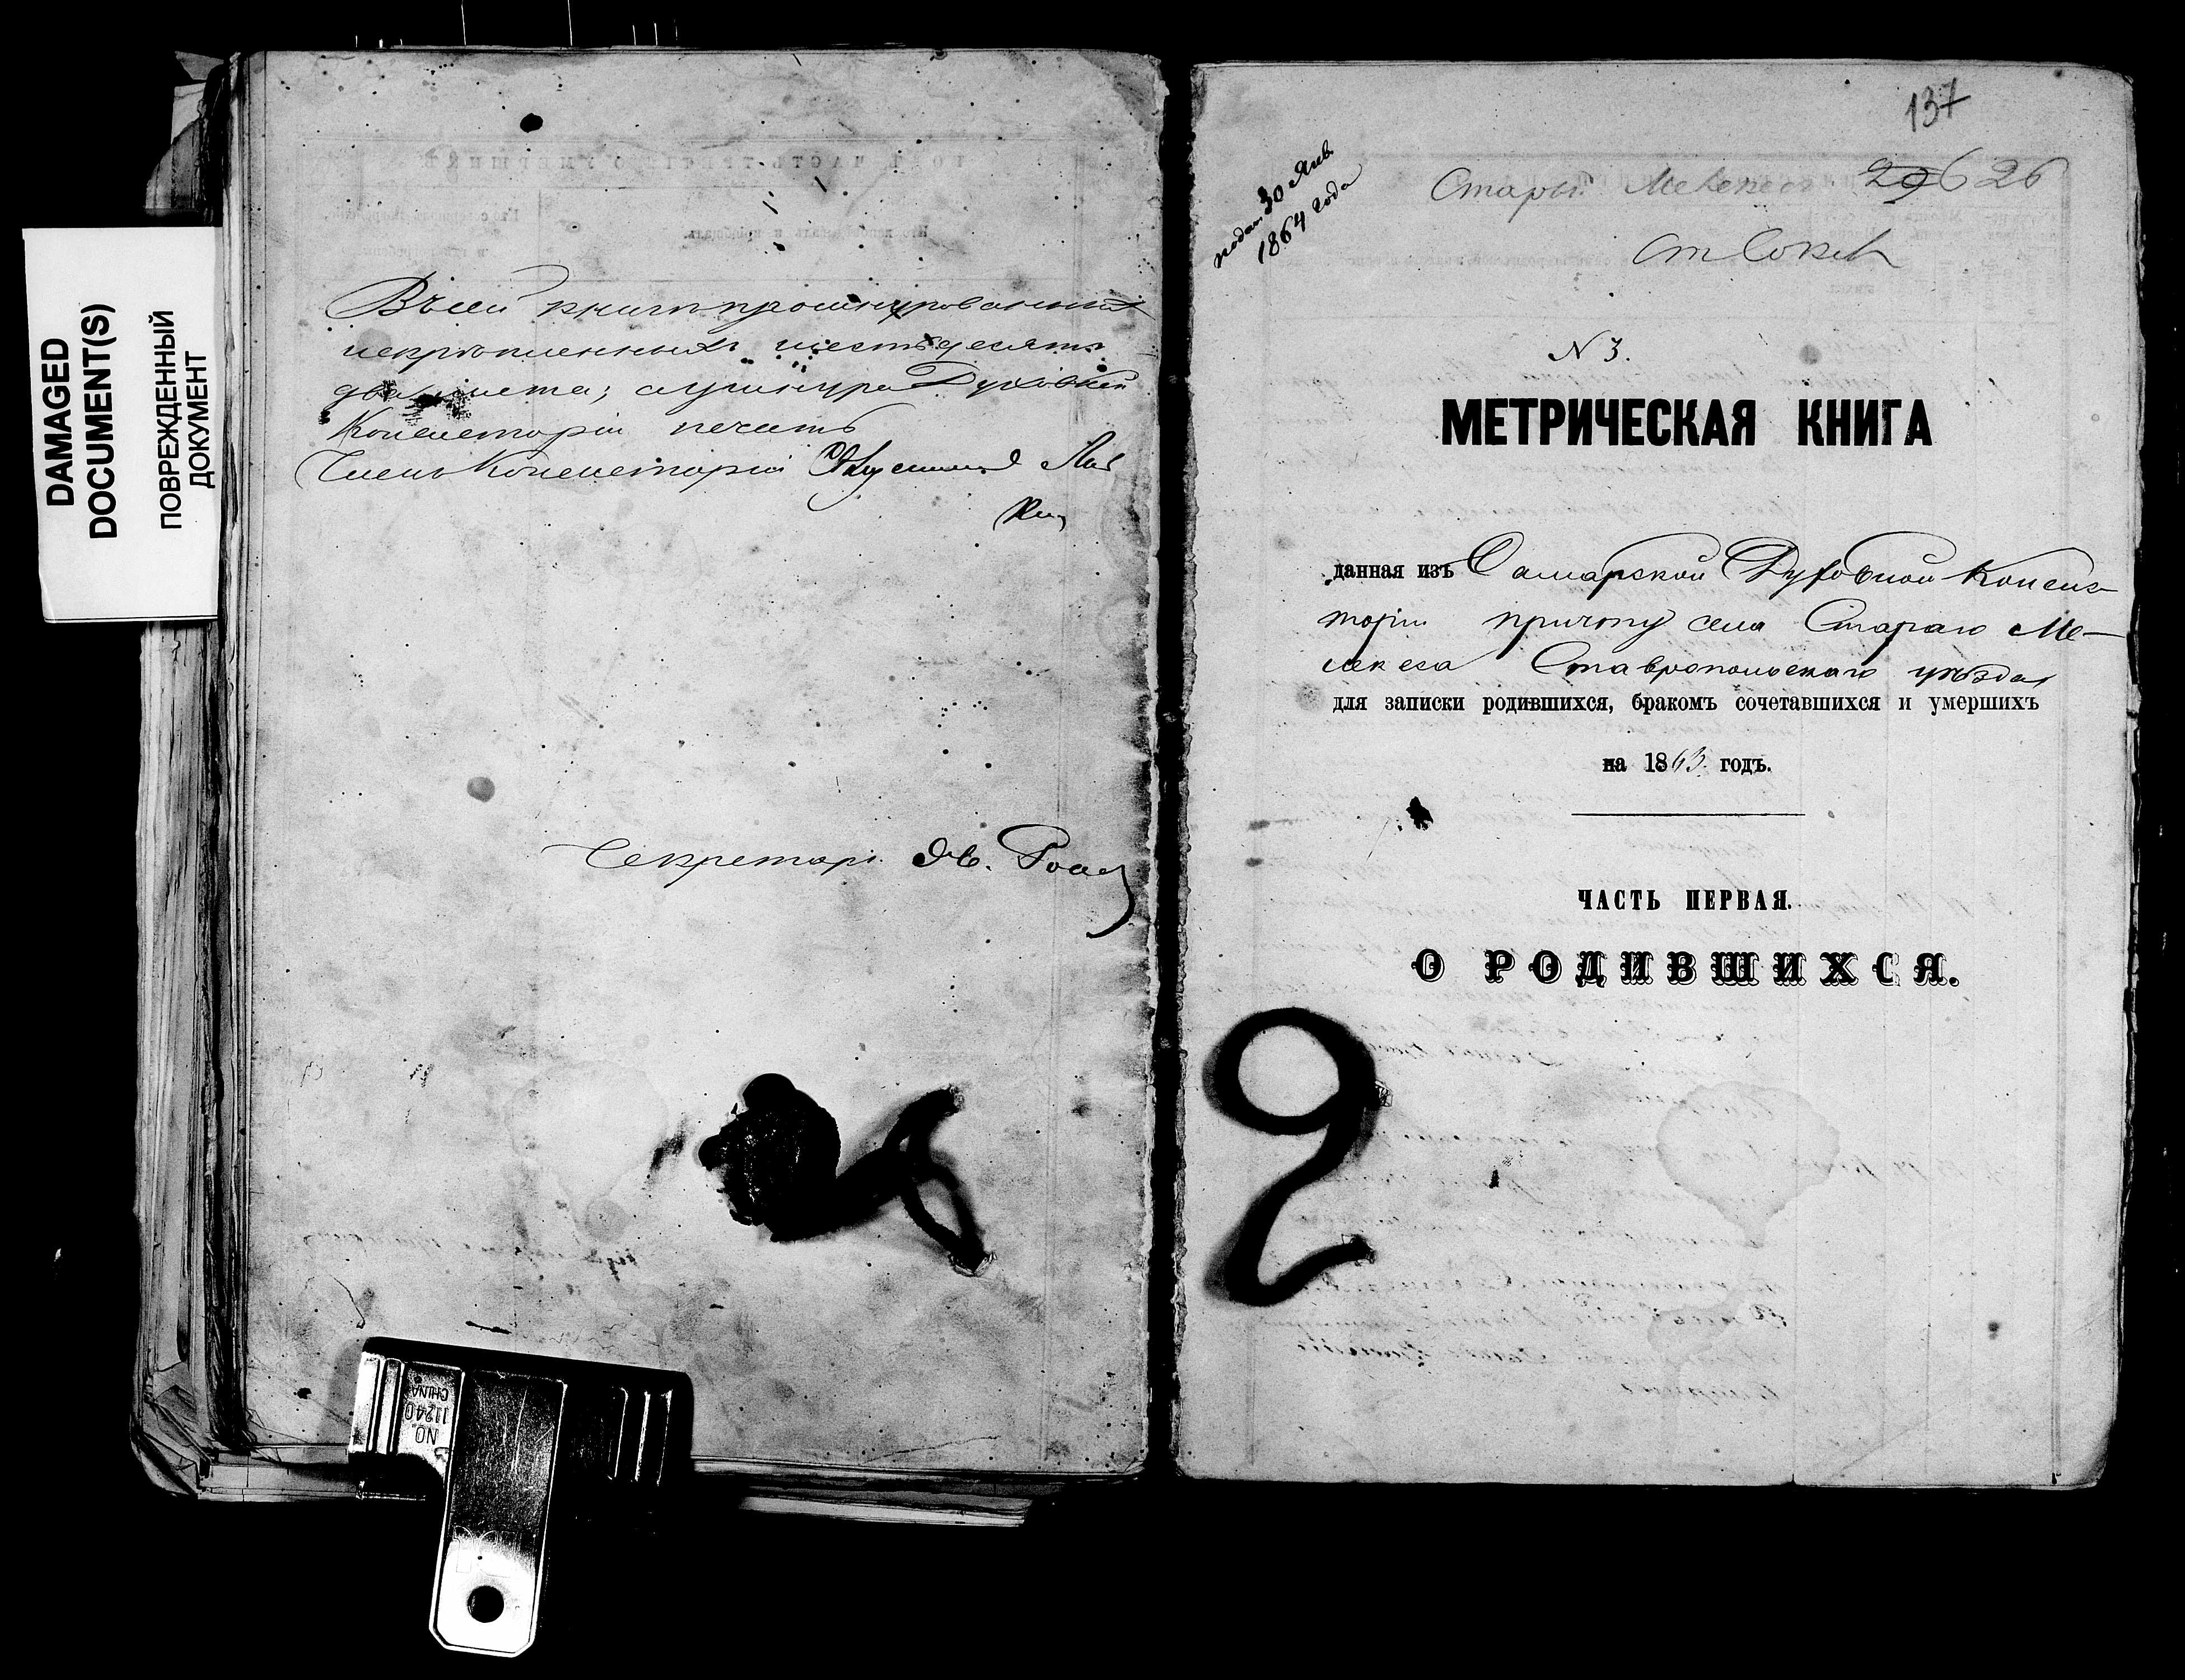 DAMAGED
DOCUMENT(S)
ПОВРЕЖДЕННЫЙ
ДОКУМЕНТ
Въ сей книгѣ прошнурованныхъ
и скрѣпленныхъ шестьдесятъ
два листа; а у шнура Духовной
Консисторіи печать
Членъ Консисторіи
Секретарь
NO.
11240
CHINA
137
подан 30 Янв
1864 года
Старый Мелекесъ 29 6 26
N 3.
МЕТРИЧЕСКАЯ КНИГА
данная изъ Самарской Духовной Консис
торіи причту села Стараго Ме-
лекеса Ставропольскаго уѣзда
для записки родившихся, бракомъ сочетавшихся и умершихъ
на 1863 годъ.
ЧАСТЬ ПЕРВАЯ.
О РОДИВШИХСЯ.